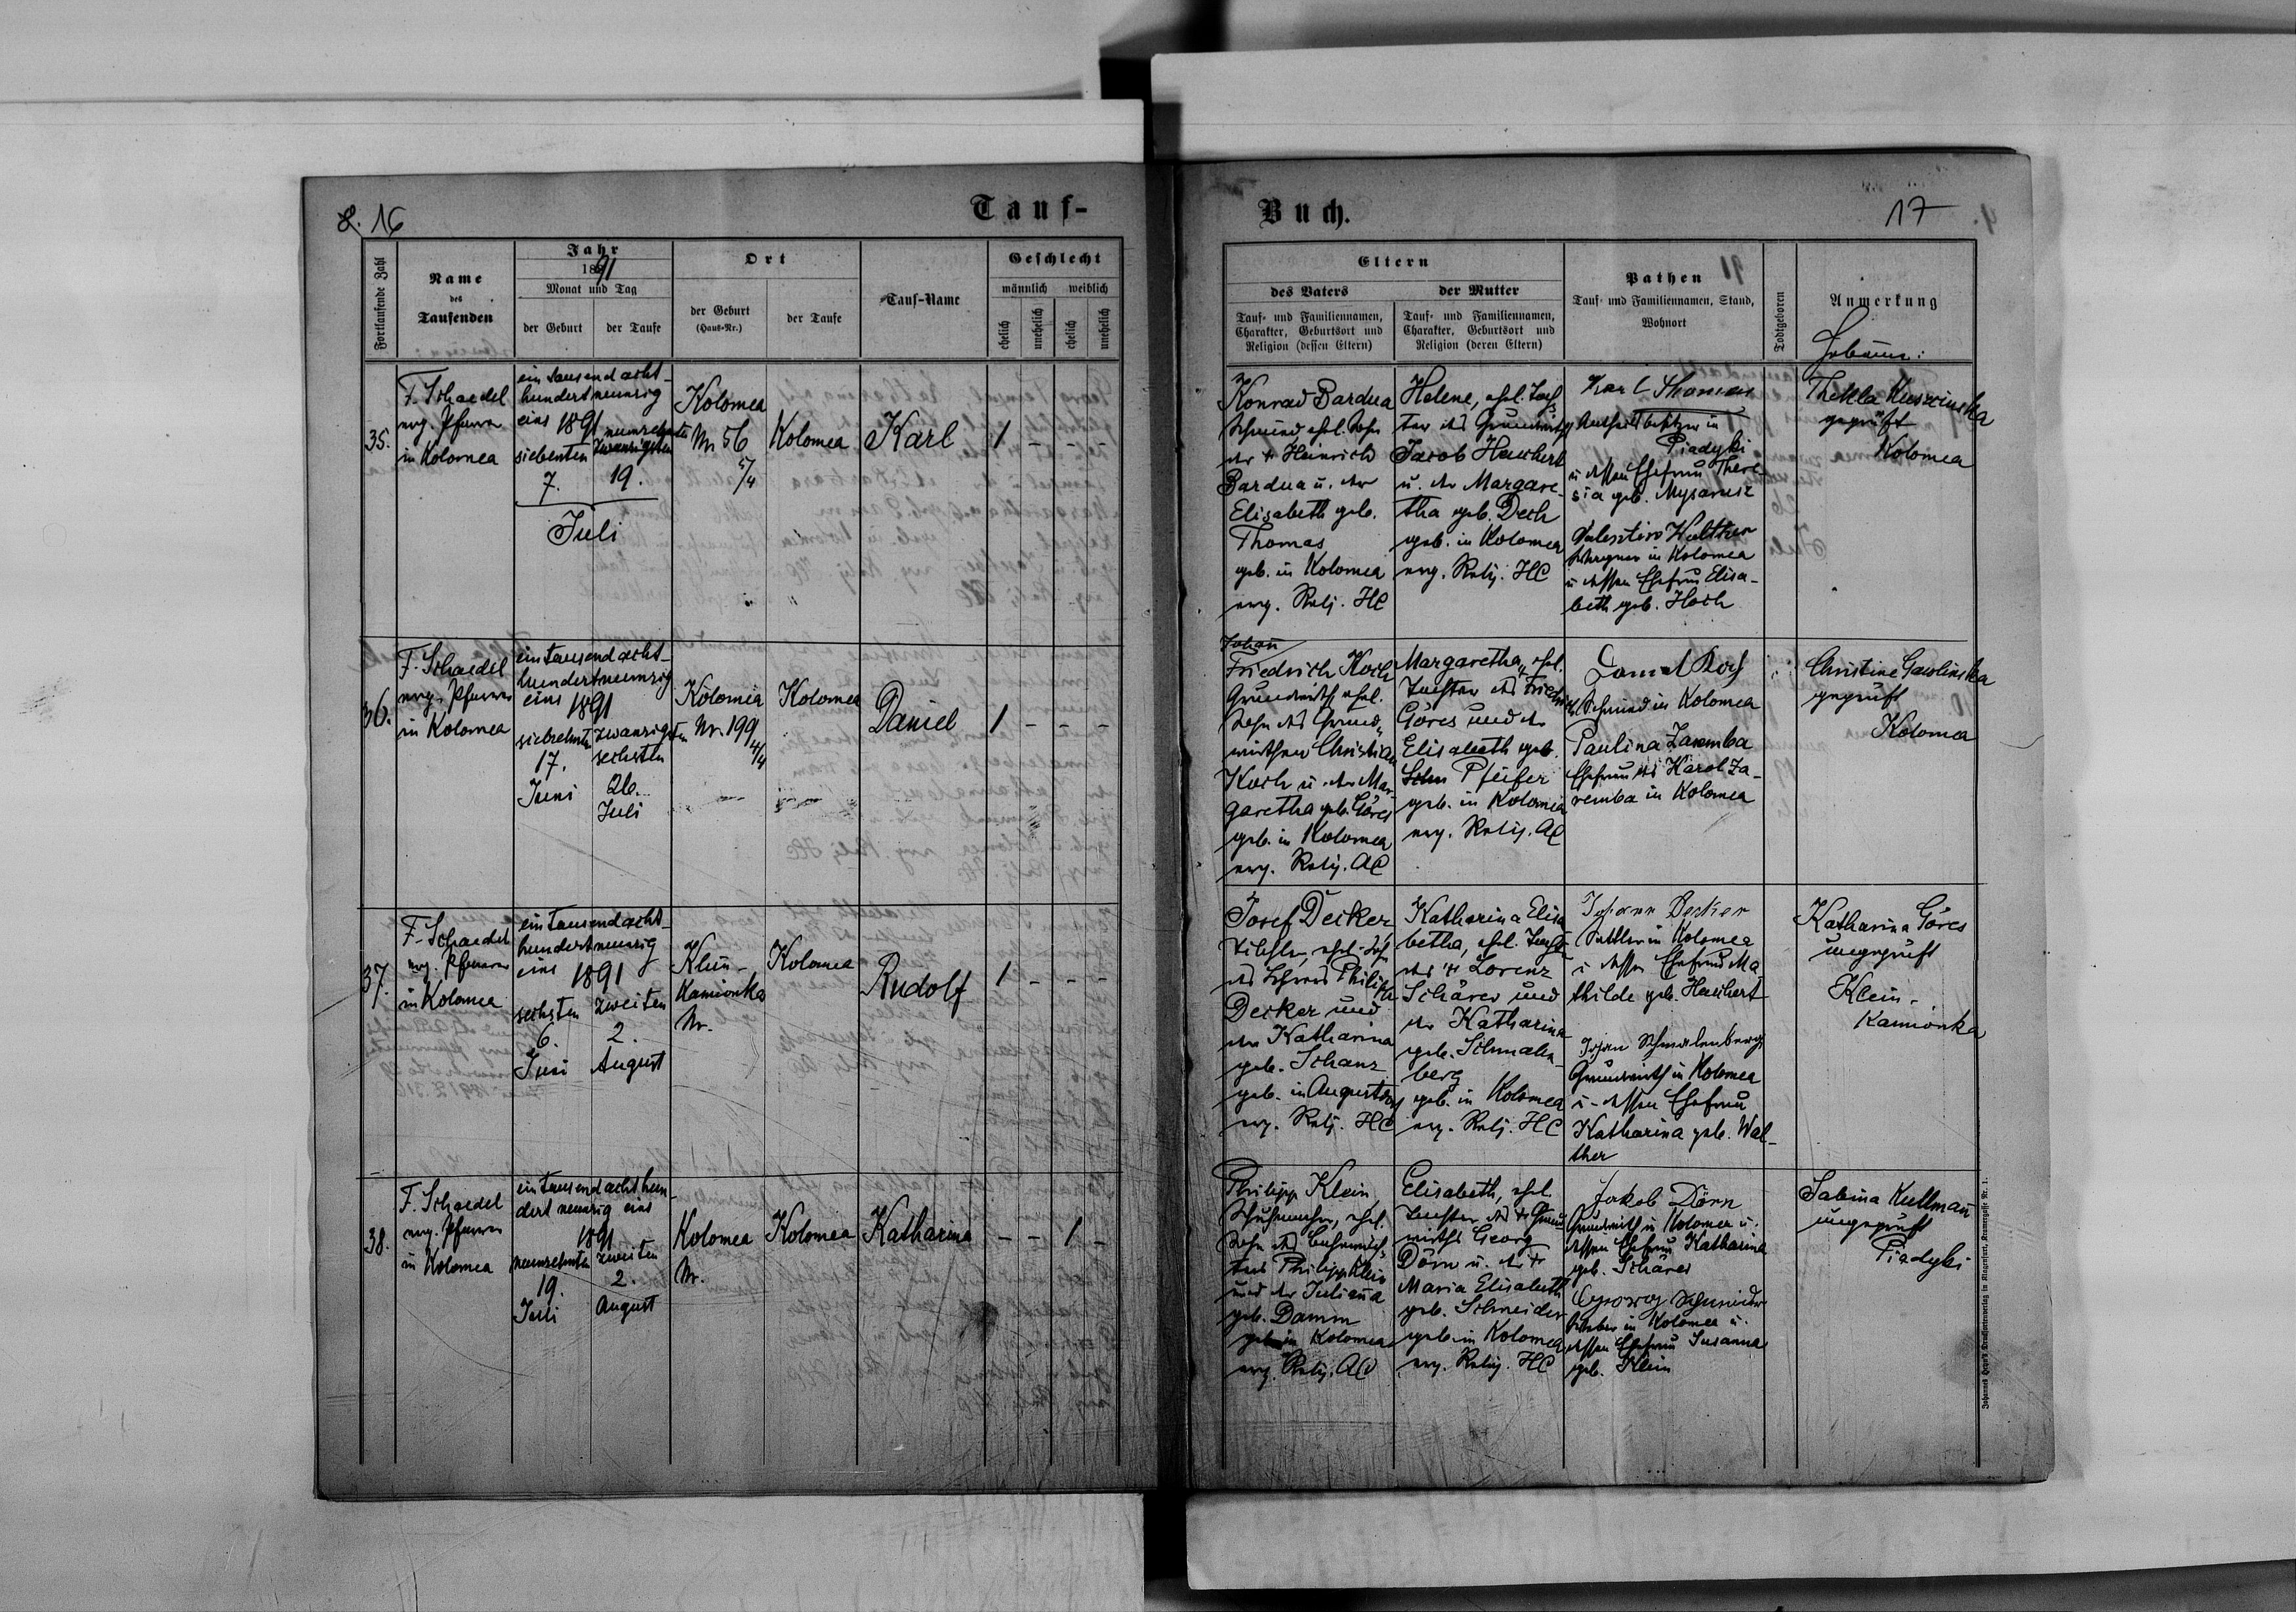 8. 16
Tauf-
Fortlaufende Zahl
Name
des
Taufenden
Jahr
1891
Monat und Tag
der Geburt
der Taufe
Ort
der Geburt
(Haus-Nr.)
der Taufe
Tauf-Name
Geschlecht
männlich weiblich
ehelich
unehelich
ehelich
unehelich
35.
F. Schaedel
evg. Pfarrer
in Kolomea
ein tausend acht-
hundert neunzig
eins 1891
siebenten
7.
neunzehnten
zwanzigsten
19.
Juli
Kolomea
Nr. 56
5/4
Kolomea
Karl
1 - - -
36.
F. Schaedel
evg. Pfarrer
in Kolomea
ein tausend acht-
hundert neunzig
eins 1891
siebzehnten
17.
Juni
zwanzigsten
sechsten
26.
Juli
Kolomea
Nr. 199
4/4
Kolomea
Daniel
1 - - -
37.
F. Schaedel
evg. Pfarrer
in Kolomea
ein tausend acht-
hundert neunzig
eins 1891
sechsten
6.
Juni
zweiten
2.
August
Klein-
Kamionka
Nr.
Kolomea
Rudolf
1 - - -
38.
F. Schaedel
evg. Pfarrer
in Kolomea
ein tausend acht hun-
dert neunzig eins
1891
neunzehnten
19.
Juli
zweiten
2.
August
Kolomea
Nr.
Kolomea
Katharina
- - 1 -
Buch.
17
Eltern
des Vaters
Tauf- und Familiennamen,
Charakter, Geburtsort und
Religion (dessen Eltern)
der Mutter
Tauf- und Familiennamen,
Charakter, Geburtsort und
Religion (deren Eltern)
Pathen
Tauf- und Familiennamen, Stand,
Wohnort
Todtgeboren
Anmerkung
Hebamme:
Konrad Bardua
Schmied, ehel. Sohn
des + Heinrich
Bardua u. der
Elisabeth geb.
Thomas
geb. in Kolomea
evg. Relj. HC
Helene, ehel. Toch-
ter des Grundwirths
Jacob Heuchert
u. der Margare-
tha geb. Dech
geb. in Kolomea
evg. Relj. HC
Karl Thomas
Antheilsbesitzer in
Piadyki
u. dessen Ehefrau There-
sia geb.
Valentin Walther
Wagner in Kolomea
u. dessen Ehefrau Elisa-
beth geb. Hoch
Thekla
geprüft
Kolomea
Johann
Friedrich Koch
Grundwirth, ehel.
Sohn des Grund-
wirthen Christian
Koch u. der Mar-
garetha geb. Göres
geb. in Kolomea
evg. Relig. AC
Margaretha, ehel.
Tochter des Friedrich
Göres und der
Elisabeth geb.
Pfeifer
geb. in Kolomea
evg. Relig. AC
Daniel Koch
Schmied in Kolomea
Paulina Zaremba
Ehefrau des Karol Za-
remba in Kolomea
Christine Gawlinska
geprüft
Kolomea
Josef Decker
Tischler, ehel. Sohn
des Philipp
Decker und
der Katharina
geb. Schanz
geb. in Augustdorf
evg. Relj. HC
Katharina Elisa-
betha, ehel. Tochter
des + Lorenz
Schärer und
der Katharina
geb. Schmalen-
berg
geb. in Kolomea
evg. Relj. HC
Johann Decker
Sattler in Kolomea
u. dessen Ehefrau Ma-
thilde geb. Heuchert
Johann Schmalenberg
Grundwirth in Kolomea
u. dessen Ehefrau
Katharina geb. Wal-
ther
Katharina Göres
ungeprüft
Klein-
Kamionka
Philipp Klein
Schuhmacher, ehel.
Sohn des
Philipp Klein
und der Juliana
geb. Damm
geb. in Kolomea
evg. Relig. AC
Elisabeth, ehel.
Tochter des + Grund-
wirths Georg
Dörn u. der +
Maria Elisabeth
geb. Schneider
geb. in Kolomea
evg. Relig. HC
Jakob Dörn
Grundwirth in Kolomea u.
dessen Ehefrau Katharina
geb. Schärer
Georg Schneider
in Kolomea u.
dessen Ehefrau Susanna
geb. Klein
Sabina Kullmann
ungeprüft
Piadyki